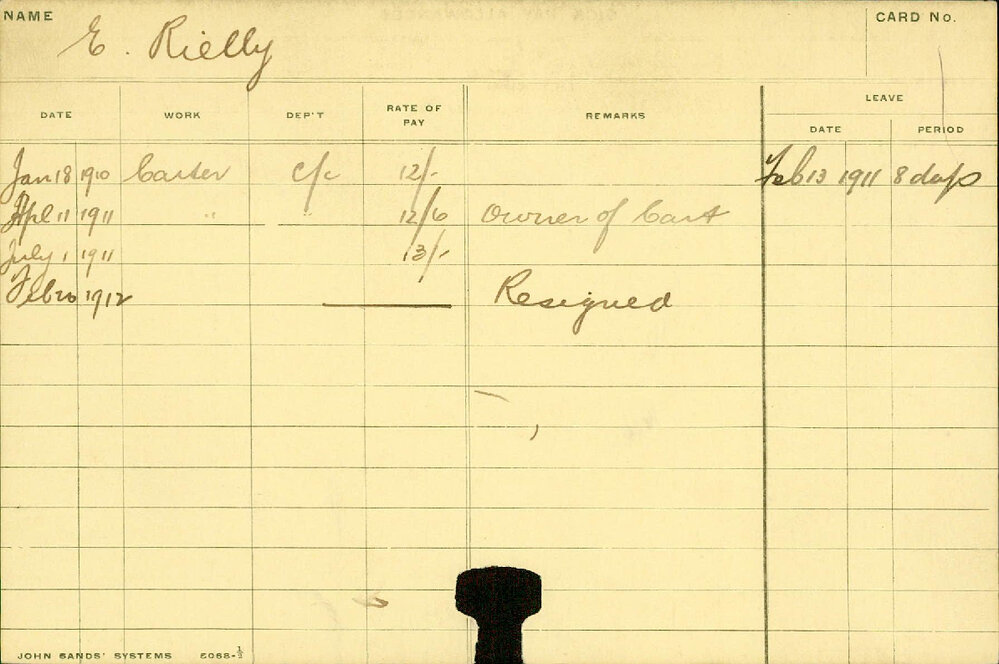 NAME E. Rielly CARD No.
LEAVE
DATE WORK DEP'T RATE OF PAY REMARKS DATE PERIOD
Jan 18 1910 Carter C/c 12/- Feb 13 1911 8 days
Apl 11 1911 " " 12/6 Owner of Cart
July 1 1911 13/-
Feb 20 1912 Resigned
JOHN SANDS' SYSTEMS